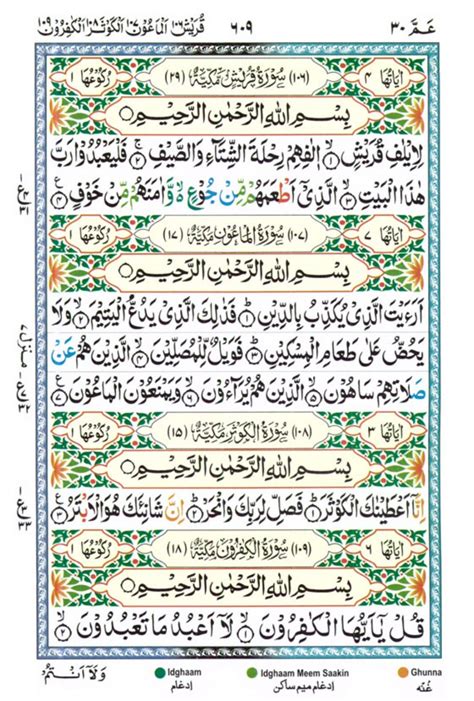 عَمَّ ٣٠ ٦٠٩ قُرَيْش ١٠٦ الْمَاعُوْن ١٠٧ الْكَوْثَر ١٠٨ الْكٰفِرُوْن ١٠٩
اٰيَاتُهَا ٤ (١٠٦) سُوْرَةُ قُرَيْشٍ مَكِّيَّةٌ (٢٩) رُكُوْعُهَا ١
بِسْمِ اللّٰهِ الرَّحْمٰنِ الرَّحِيْمِ
لِاِيْلٰفِ قُرَيْشٍ ١ اٖلٰفِهِمْ رِحْلَةَ الشِّتَآءِ وَالصَّيْفِ ٢ فَلْيَعْبُدُوْا رَبَّ
هٰذَا الْبَيْتِ ٣ الَّذِيْۤ اَطْعَمَهُمْ مِّنْ جُوْعٍ ۙ وَّاٰمَنَهُمْ مِّنْ خَوْفٍ ٤
اٰيَاتُهَا ٧ (١٠٧) سُوْرَةُ الْمَاعُوْنِ مَكِّيَّةٌ (١٧) رُكُوْعُهَا ١
بِسْمِ اللّٰهِ الرَّحْمٰنِ الرَّحِيْمِ
اَرَءَيْتَ الَّذِيْ يُكَذِّبُ بِالدِّيْنِ ١ فَذٰلِكَ الَّذِيْ يَدُعُّ الْيَتِيْمَ ٢ وَلَا
يَحُضُّ عَلٰى طَعَامِ الْمِسْكِيْنِ ٣ فَوَيْلٌ لِّلْمُصَلِّيْنَ ٤ الَّذِيْنَ هُمْ عَنْ
صَلَاتِهِمْ سَاهُوْنَ ٥ الَّذِيْنَ هُمْ يُرَآءُوْنَ ٦ وَيَمْنَعُوْنَ الْمَاعُوْنَ ٧
اٰيَاتُهَا ٣ (١٠٨) سُوْرَةُ الْكَوْثَرِ مَكِّيَّةٌ (١٥) رُكُوْعُهَا ١
بِسْمِ اللّٰهِ الرَّحْمٰنِ الرَّحِيْمِ
اِنَّاۤ اَعْطَيْنٰكَ الْكَوْثَرَ ١ فَصَلِّ لِرَبِّكَ وَانْحَرْ ٢ اِنَّ شَانِئَكَ هُوَ الْاَبْتَرُ ٣
اٰيَاتُهَا ٦ (١٠٩) سُوْرَةُ الْكٰفِرُوْنَ مَكِّيَّةٌ (١٨) رُكُوْعُهَا ١
بِسْمِ اللّٰهِ الرَّحْمٰنِ الرَّحِيْمِ
قُلْ يٰۤاَيُّهَا الْكٰفِرُوْنَ ١ لَاۤ اَعْبُدُ مَا تَعْبُدُوْنَ ٢
وَلَاۤ اَنْتُمْ
Idghaam Idghaam Meem Saakin Ghunna
اِدغَام اِدغَام ميم ساكن غُنّه
منزل ٧